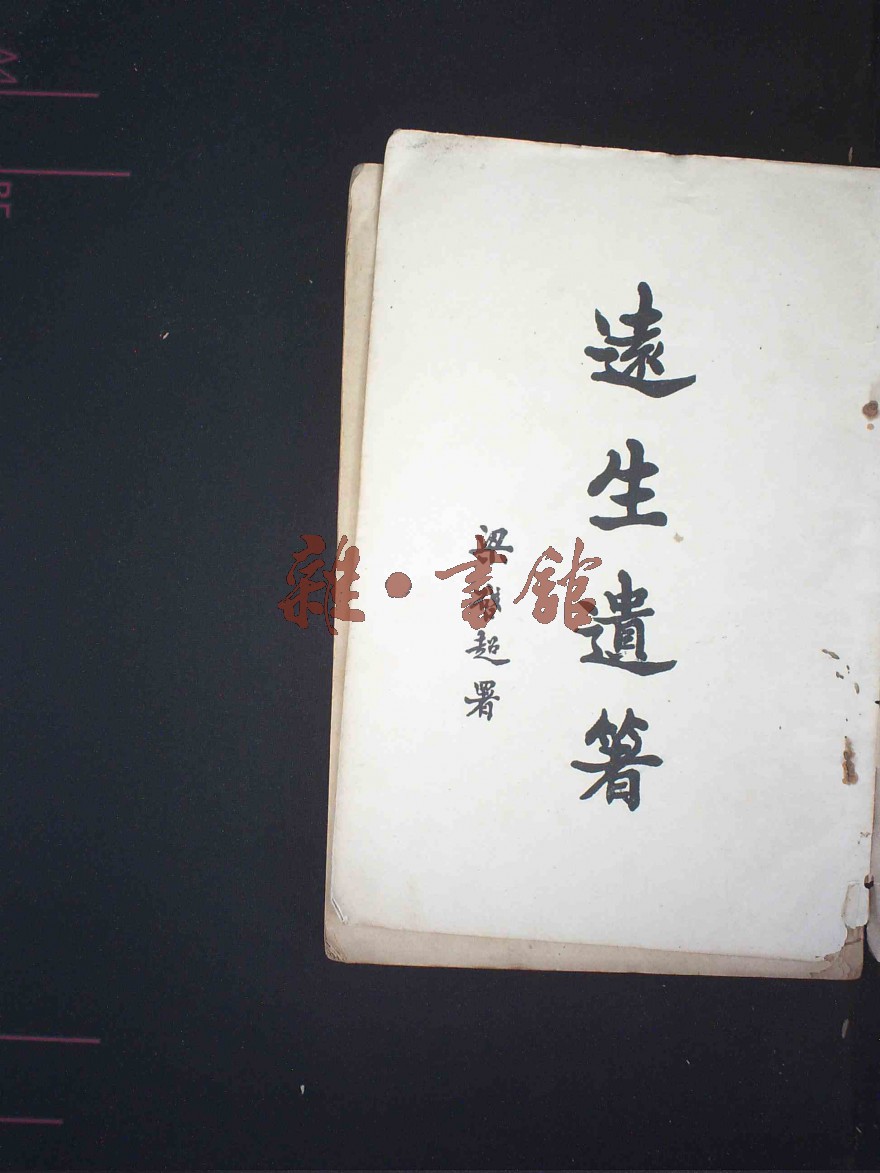 遠生遺箸
梁啟超署
雜·書館
A4
B5